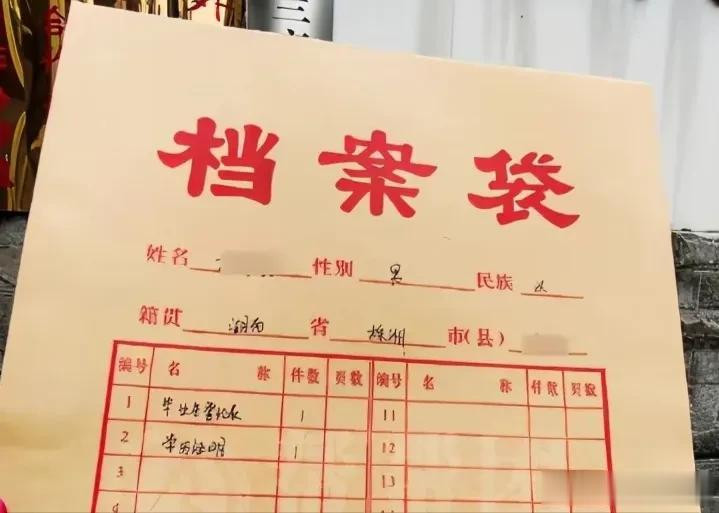 档案袋
姓名 性别 男 民族
籍贯 湖南 省 株洲 市(县)
编号 名 称 件数 页数 编号 名 称 件数 页数
1 毕业生登记表 1 11
2 学历证明 1 12
3 13
4